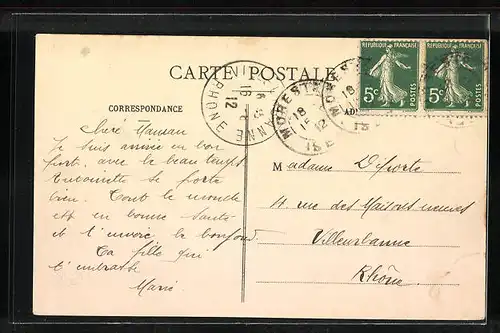 CARTE POSTALE
RÉPUBLIQUE FRANÇAISE
5c
POSTES
RÉPUBLIQUE FRANÇAISE
5c
POSTES
RHONE
16
12
MORESTEL
18
12
ISE
18
CORRESPONDANCE
AD
Chère Maman
Je suis arrivée en bon
port, avec le beau temps
Antoinette se porte
bien. Tout le monde
est en bonne santé
et t'envoie le bonjour
Ta fille qui
t'embrasse
Marie
Madame Deporte
14 rue des Maisons neuves
Villeurbanne
Rhône